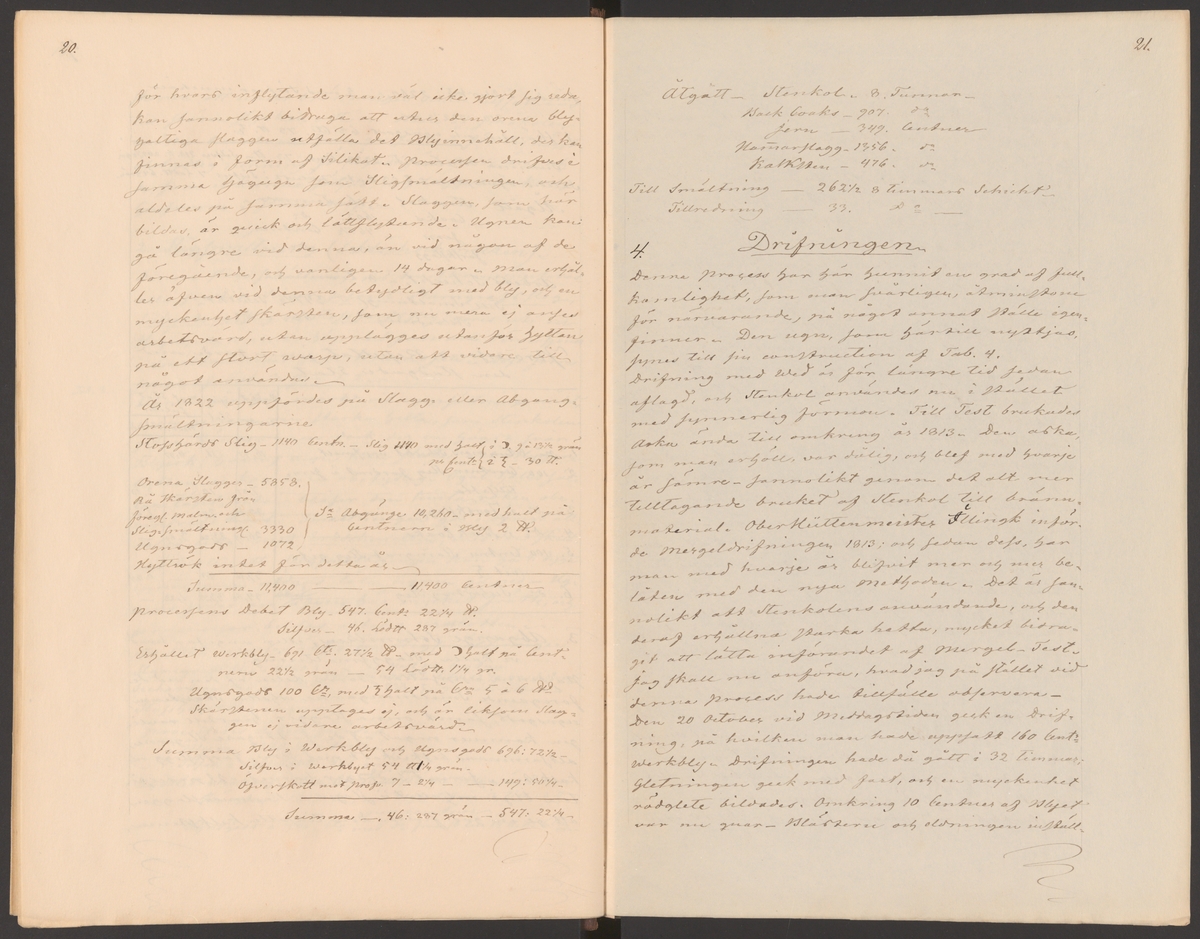 20.
för hvars inflytande man väl icke gjort sig reda,
kan sannolikt bidraga att utur den orena bly-
haltiga slaggen utfälla det Blyinnehåll, der kan
finnas i form af Silikat. Processen drifves i
samma Högugn som Sligsmältningen, och
aldeles på samma sätt. Slaggen, som här
bildas, är qvick och lättflytande. Ugnen kan
gå längre vid denna, än vid någon af de
föregående, och vanligen 14 dagar. Man erhål-
les äfven vid denna betydligt med bly, och en
myckenhet skärsten, som nu mera ej anses
arbetsvärd, utan upplägges utanför Hyttan
på ett stort warp, utan att vidare till
något användas.
År 1822 uppfördes på Slagg- eller Abgang-
smältningarne
Stosshärds Slig - 1140 Centn. - Slig 1140 med halt
Orena Slagger - 5858.
Rå Skärsten från
föreg. malm och
Sligsmältning. 3330
Ugnsgods - 1072
Hyttrök intet för detta år
Sa Abgänge 10,260 - med halt på
Centnern i Bly 2 ℔.
Summa - 11,400 — 11400 Centner
Processens Debet Bly - 547. Centr 22 1/4 ℔.
Silfver - 46. Lödtt 287 grän.
Erhållet Werkbly - 691 Ctr. 27 1/2 ℔ - med halt på Cent-
nern 22 1/2 grän - 54 Lödtt. 1 1/4 gr.
Ugnsgods 100 Ctr. med halt på Ctr 5 à 6 ℔.
Skärstenen upptages ej, och är liksom Slag-
gen ej vidare arbetsvärd.
Summa Bly i Werkbly och Ugnsgods 696: 72 1/2 -
Silfver i Werkblyet 54 1 1/4 grän.
Öfverskott mot prof 7 - 2 1/4 — 149: 50 1/4 -
Summa —. 46: 287 grän - 547: 22 1/4 -
21.
Åtgått - Stenkol. 8. Tunnor -
Back Coaks - 907. do
Jern - 349. Centner
Hamarslagg - 1356. do
Kalksten - 476. do
Till Smältning — 262 1/2 8 timmars Schicht
Tillredning — 33. Do —
4. Drifningen
Denna Process har här hunnit en grad af full-
komlighet, som man svårligen, åtminstone
för närvarande, på något annat ställe igen-
finner. Den ugn, som härtill nyttjas,
synes till sin construction af Tab. 4.
Drifning med Wed är för längre tid sedan
aflagd, och Stenkol användes nu i stället
med synnerlig förmon. Till Test brukades
Aska ända till omkring år 1813. Den aska,
som man erhöll, var dålig, och blef med hvarje
år sämre - sannolikt genom det allt mer
tilltagande bruket af Stenkol till bränn-
material. OberHüttenmeister Illingk inför-
de Mergeldrifningen 1813; och sedan dess, har
man med hvarje år blifvit mer och mer be-
låten med den nya Methoden. Det är san-
nolikt att Stenkolens användande, och den
deraf erhållna starka hetta, mycket bidra-
git att lätta införandet af Mergel-Test.
Jag skall nu anföra, hvad jag på stället vid
denna process hade tillfälle observera -
Den 20 October vid Meddagstiden geck en Drif-
ning, på hvilken man hade uppsatt 160 Centr
Werkbly. Drifningen hade då gått i 32 timmar.
Gletningen geck med fart, och en myckenhet
rödglete bildades. Omkring 10 Centner af Blyet
var nu qvar - Blästern och eldningen inställ-